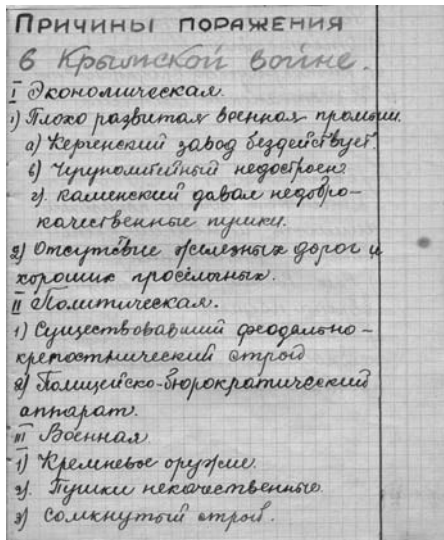 Причины поражения
в Крымской войне.
I Экономическая.
1) Плохо развитая военная промышл.
а) Керченский завод бездействует.
в) Чугунолитейный недостроен
г). каменский давал недобро-
качественные пушки.
2) Отсутствие железных дорог и
хороших просёлочных.
II Политическая.
1) Существовавший феодально-
крепостнический строй
2) Полицейско-бюрократический
аппарат.
III Военная
1) Кремневое оружие.
2). Пушки некачественные.
3) сомкнутый строй.